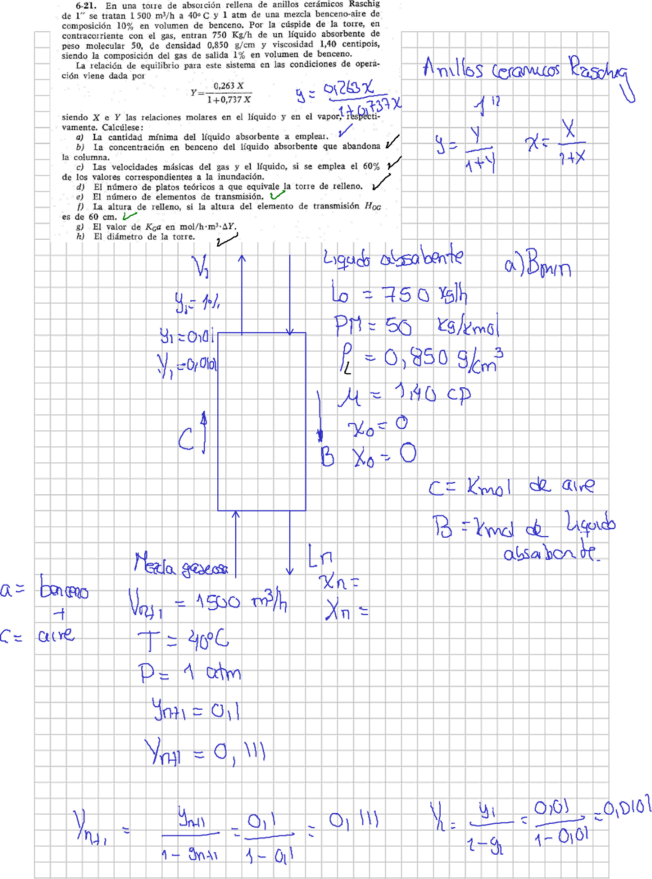 6-21. En una torre de absorción rellena de anillos cerámicos Raschig
de 1" se tratan 1 500 m³/h a 40° C y 1 atm de una mezcla benceno-aire de
composición 10% en volumen de benceno. Por la cúspide de la torre, en
contracorriente con el gas, entran 750 Kg/h de un líquido absorbente de
peso molecular 50, de densidad 0,850 g/cm y viscosidad 1,40 centipois,
siendo la composición del gas de salida 1% en volumen de benceno.
La relación de equilibrio para este sistema en las condiciones de opera-
ción viene dada por
Y = 0,263 X / 1 + 0,737 X
y = 0,263x / 1+0,737x
siendo X e Y las relaciones molares en el líquido y en el vapor, respecti-
vamente. Calcúlese:
a) La cantidad mínima del líquido absorbente a emplear.
b) La concentración en benceno del líquido absorbente que abandona
la columna.
c) Las velocidades másicas del gas y el líquido, si se emplea el 60%
de los valores correspondientes a la inundación.
d) El número de platos teóricos a que equivale la torre de relleno.
e) El número de elementos de transmisión.
f) La altura de relleno, si la altura del elemento de transmisión H_OG
es de 60 cm.
g) El valor de K_Ga en mol/h·m³·ΔY.
h) El diámetro de la torre.
Anillos ceramicos Raschig
1"
y = Y / 1+Y
x = X / 1+X
V1
y1 = 1%
y1 = 0,01
Y1 = 0,0101
C
B
Liquido absorbente
Lo = 750 kg/h
PM = 50 kg/kmol
ρL = 0,850 g/cm³
μ = 1,40 cp
x0 = 0
X0 = 0
a) Bmin
C = Kmol de aire
B = Kmol de liquido
absorbente.
Ln
xn =
Xn =
Mezcla gaseosa
a = benceno
+
C = aire
Vn+1 = 1500 m³/h
T = 40°C
P = 1 atm
yn+1 = 0,1
Yn+1 = 0,111
Yn+1 = yn+1 / 1 - yn+1 = 0,1 / 1 - 0,1 = 0,111
Y1 = y1 / 1 - y1 = 0,01 / 1 - 0,01 = 0,0101